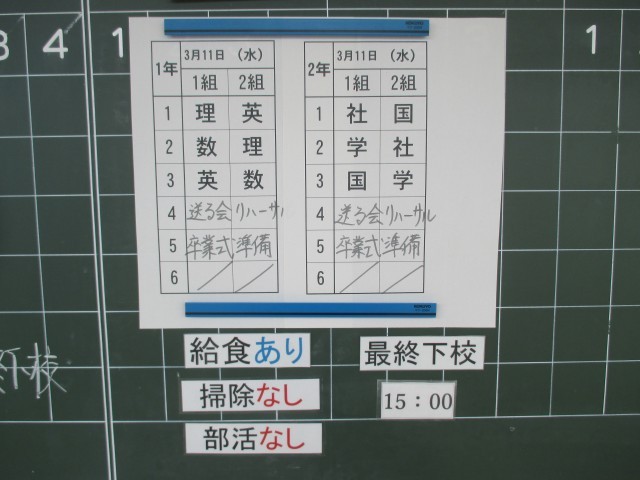 3 4 1
1
1年 3月11日 (水)
1組 2組
1 理 英
2 数 理
3 英 数
4 送る会リハーサル
5 卒業式準備
6 / /
2年 3月11日 (水)
1組 2組
1 社 国
2 学 社
3 国 学
4 送る会リハーサル
5 卒業式準備
6 / /
給食あり
最終下校
掃除なし
15:00
部活なし
下校